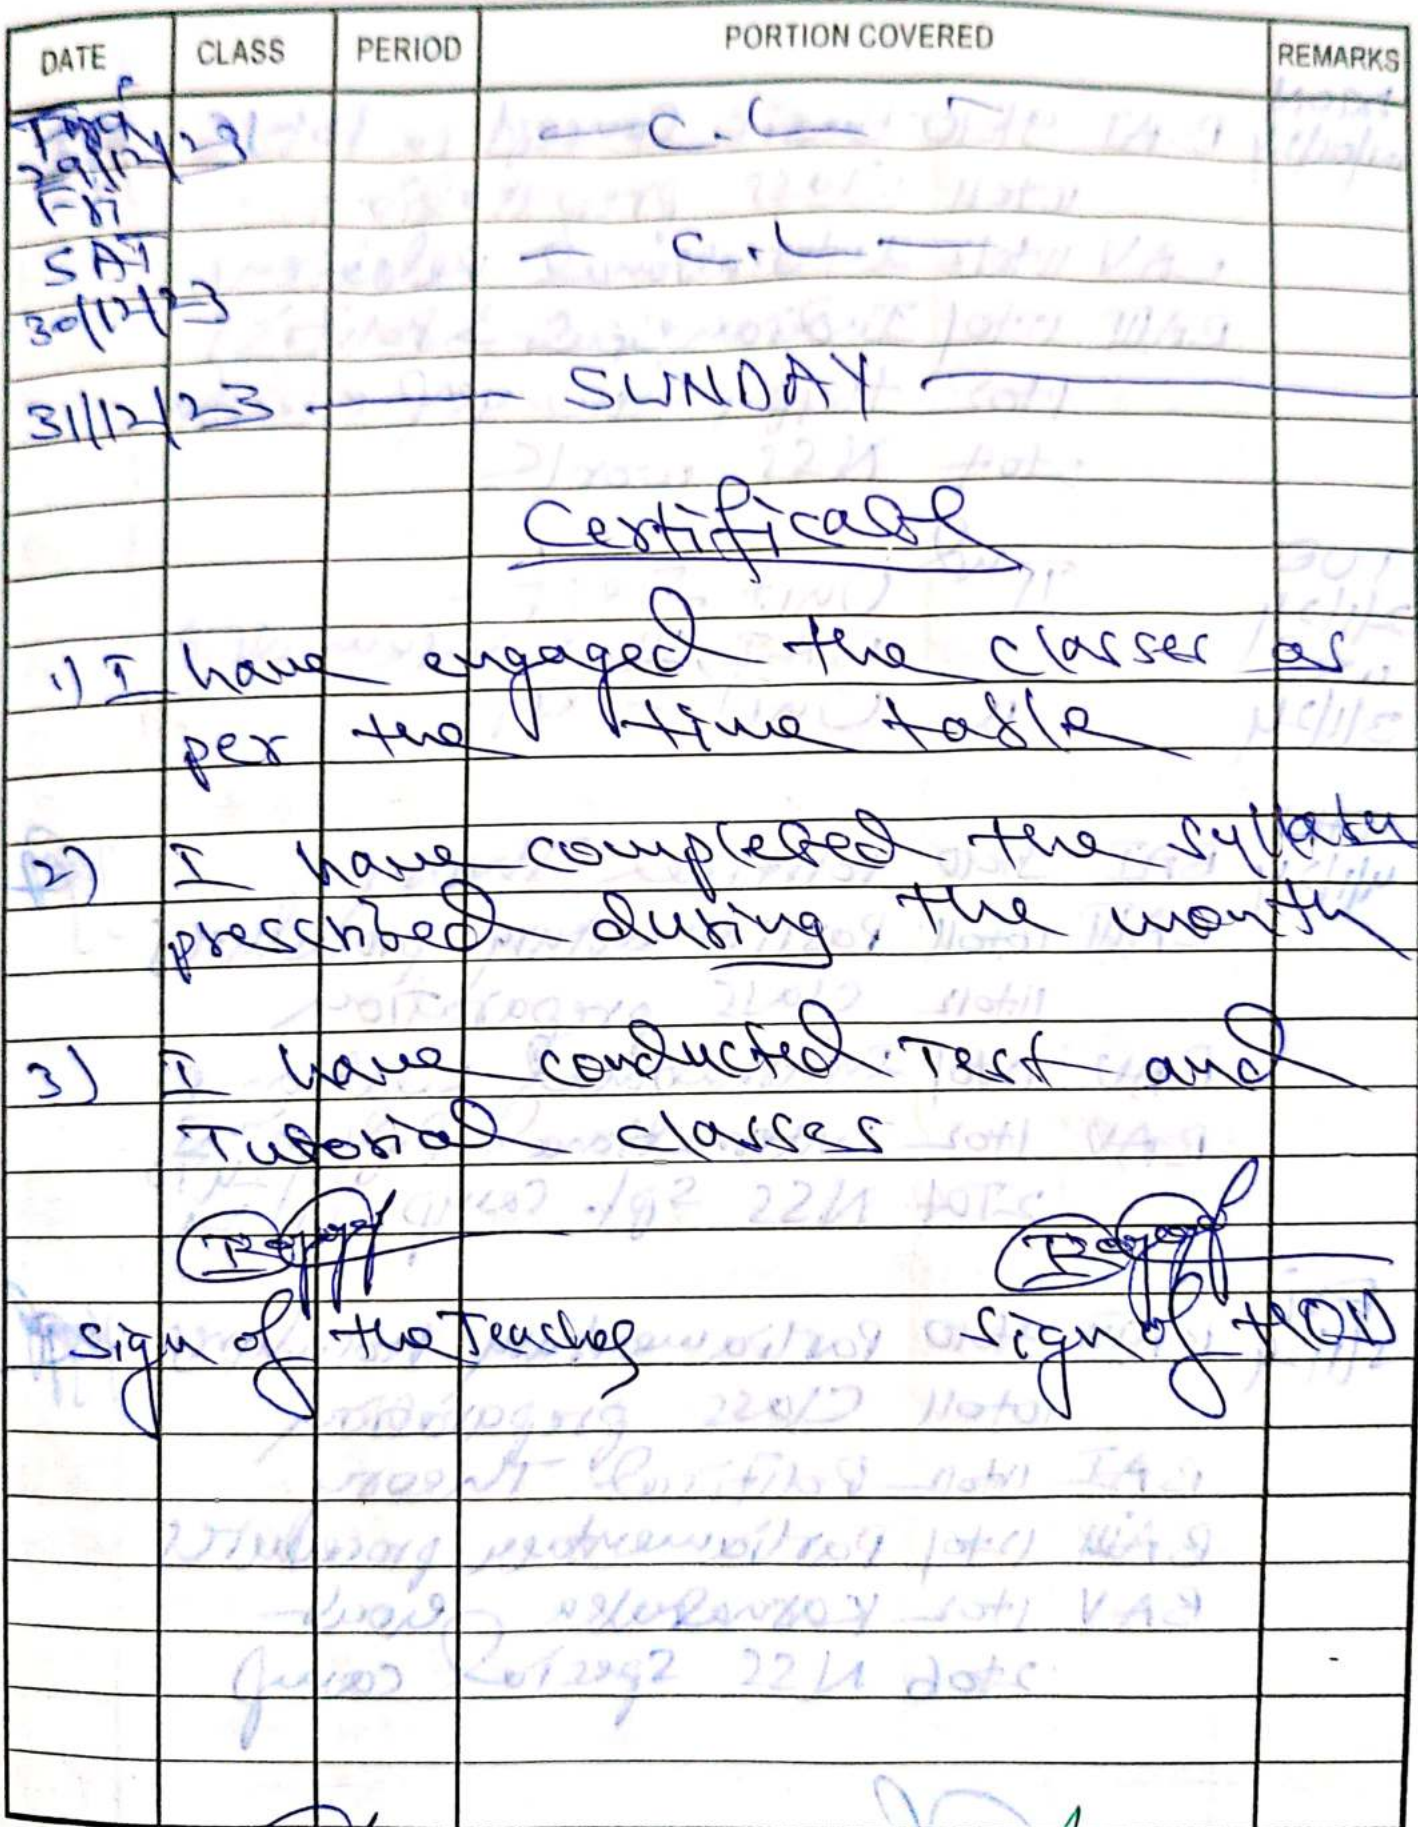 DATE CLASS PERIOD PORTION COVERED REMARKS
29/12/23 - C.L -
Fri
SAT - C.L -
30/12/23
31/12/23 - SUNDAY -
Certificate
1) I have engaged the classes as
per the time table
2) I have completed the syllabu
prescribed during the month
3) I have conducted Test and
Tutorial classes
Sign of the Teacher Sign of HOD